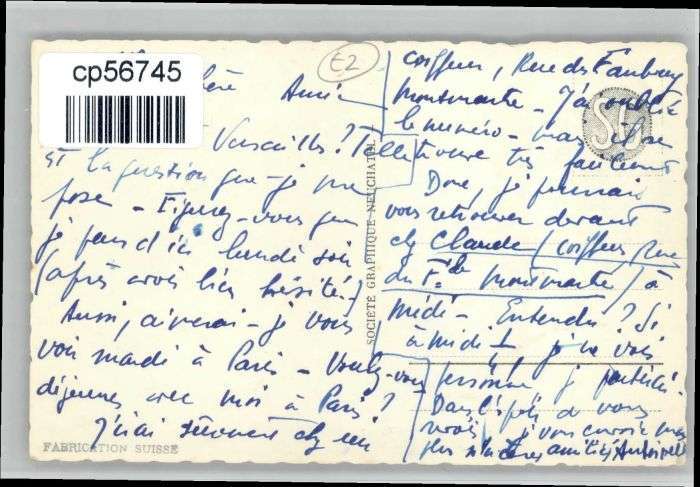 cp56745
E2
Chère Amie
Versailles? Telle
est la question que je me
pose - Figurez-vous que
je pars d'ici lundi soir
(après avoir bien hésité -)
Aussi, aimerai-je vous
voir mardi à Paris - Voulez-vous
déjeuner avec moi à Paris?
J'irai sûrement chez un
FABRICATION SUISSE
SOCIÉTÉ GRAPHIQUE NEUCHATEL
coiffeur, Rue du Faubourg
Montmartre - J'ai oublié
le numéro - mais il se
trouve très facilement
Donc, je pourrais
vous retrouver devant
chez Claude (coiffeur, Rue
du Fg Montmartre) à
midi - Entendu? Si
à midi je ne vois
personne je partirai.
Dans l'espoir de vous
voir, je vous envoie mes
plus sincères amitiés
SG